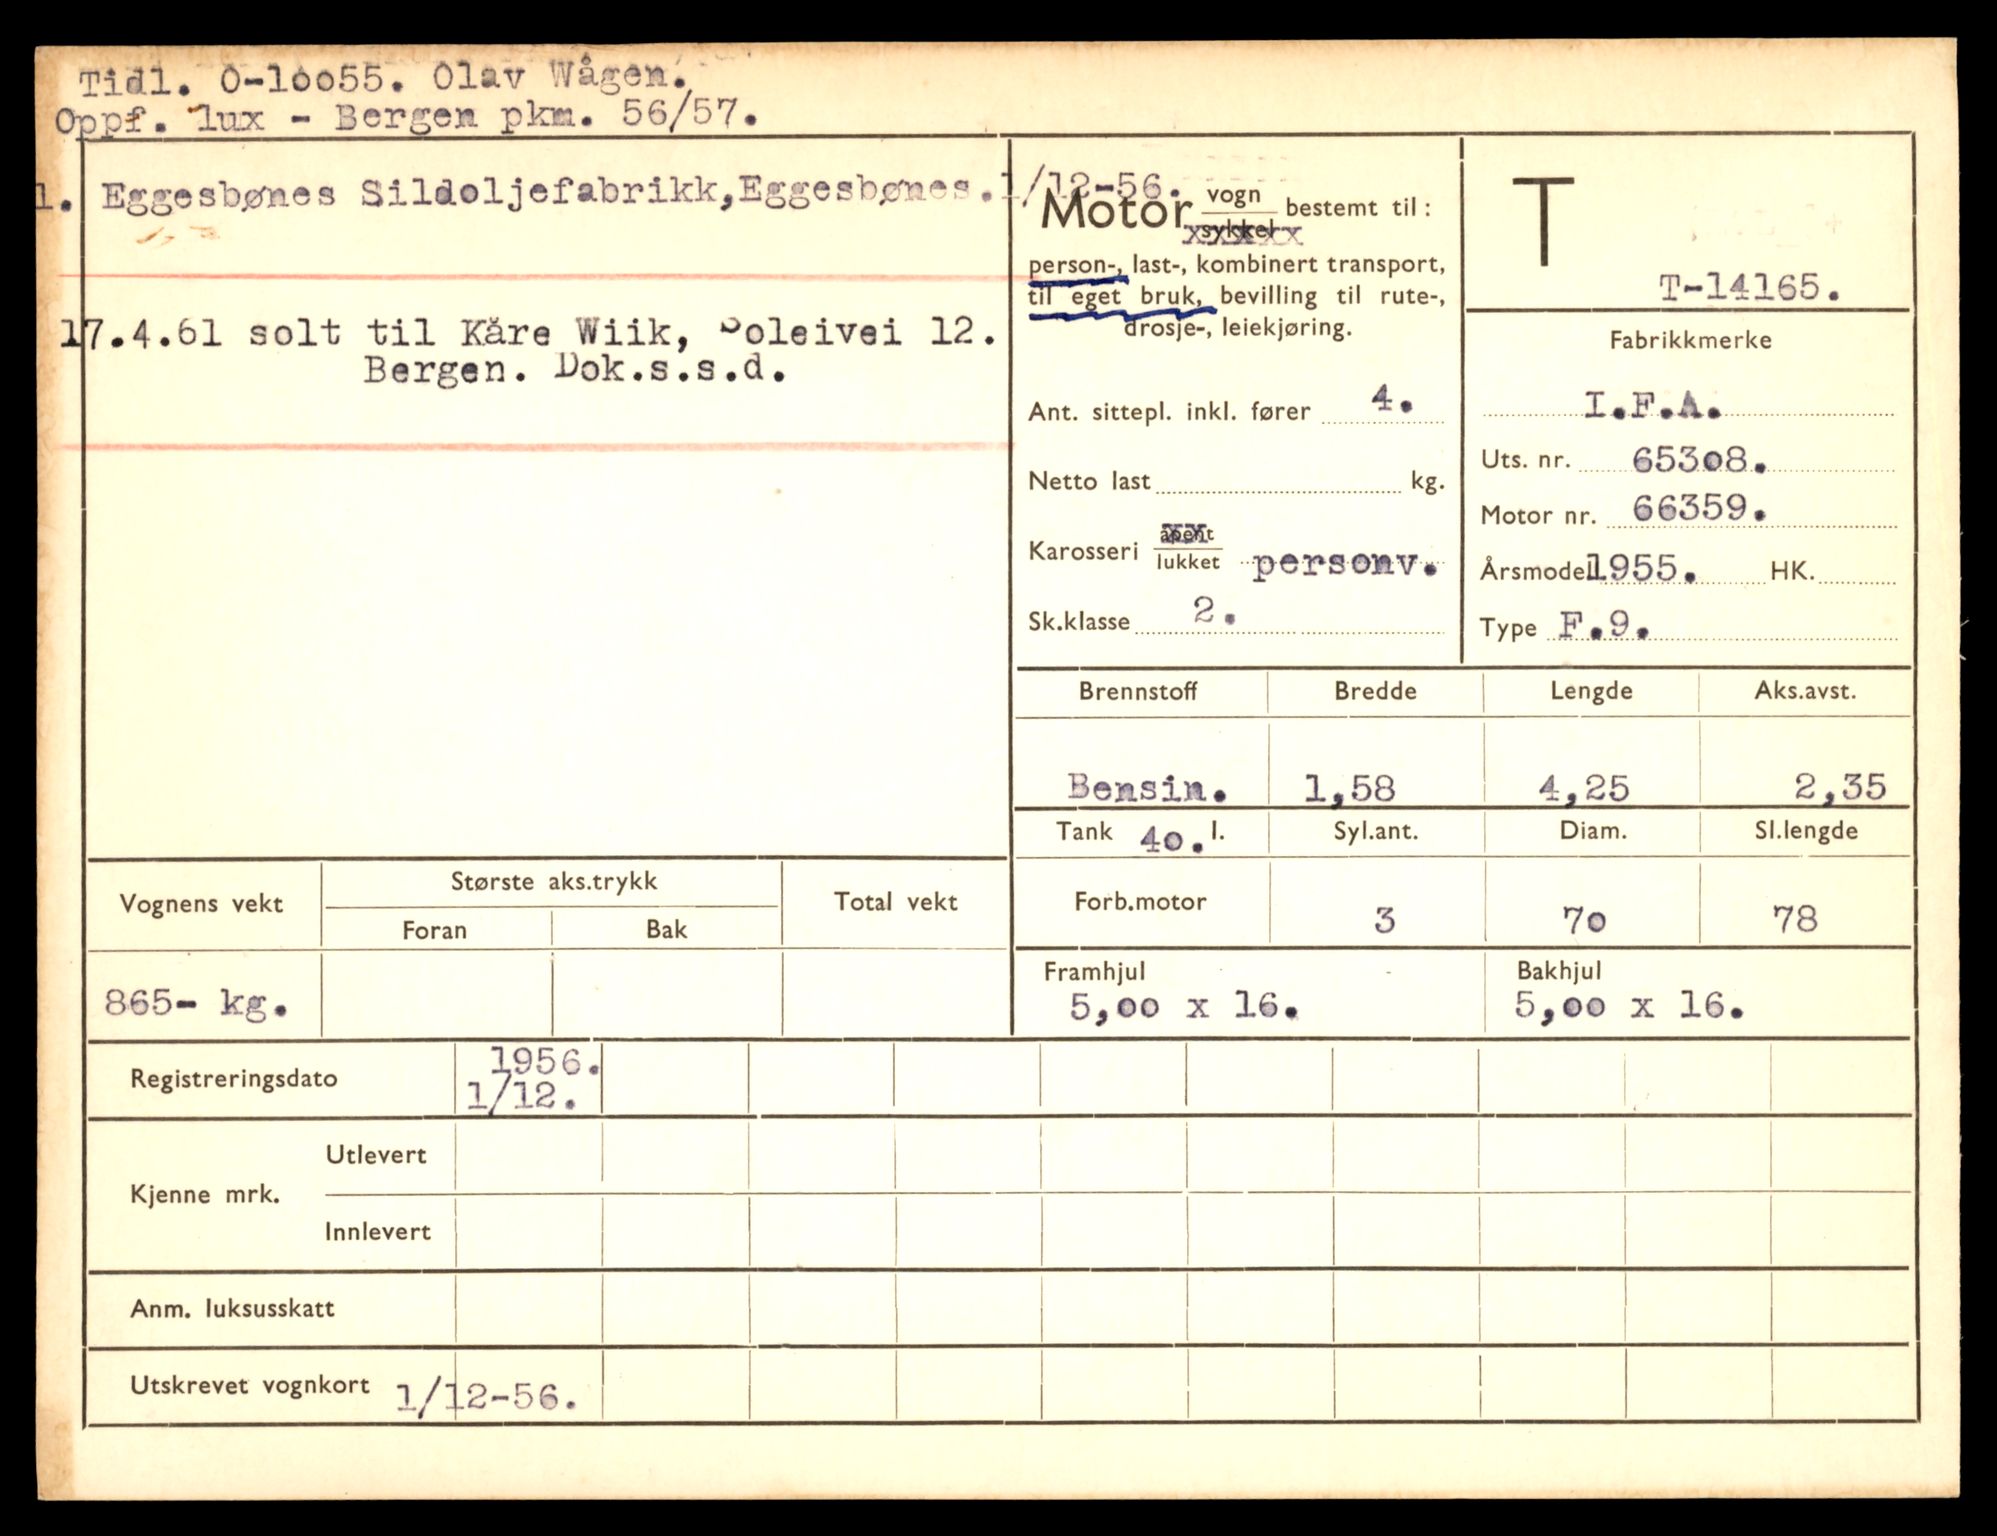 Tidl. O-10055. Olav Wågen.
Oppf. lux - Bergen pkm. 56/57.
1. Eggesbønes Sildoljefabrikk, Eggesbønes. 1/12-56.
17.4.61 solt til Kåre Wiik, Soleivei 12.
Bergen. Dok.s.s.d.
Motor vogn bestemt til:
sykkel
person-, last-, kombinert transport,
til eget bruk, bevilling til rute-,
drosje-, leiekjøring.
Ant. sittepl. inkl. fører 4.
Netto last kg.
Karosseri åpent
lukket personv.
Sk.klasse 2.
T
T-14165.
Fabrikkmerke
I.F.A.
Uts. nr. 65308.
Motor nr. 66359.
Årsmodel 1955. HK.
Type F.9.
Brennstoff Bredde Lengde Aks.avst.
Bensin. 1,58 4,25 2,35
Tank 40. l. Syl.ant. Diam. Sl.lengde
Forb.motor 3 70 78
Framhjul Bakhjul
5,00 x 16. 5,00 x 16.
Vognens vekt Største aks.trykk Total vekt
Foran Bak
865- kg.
Registreringsdato 1956.
1/12.
Kjenne mrk. Utlevert
Innlevert
Anm. luksusskatt
Utskrevet vognkort 1/12-56.